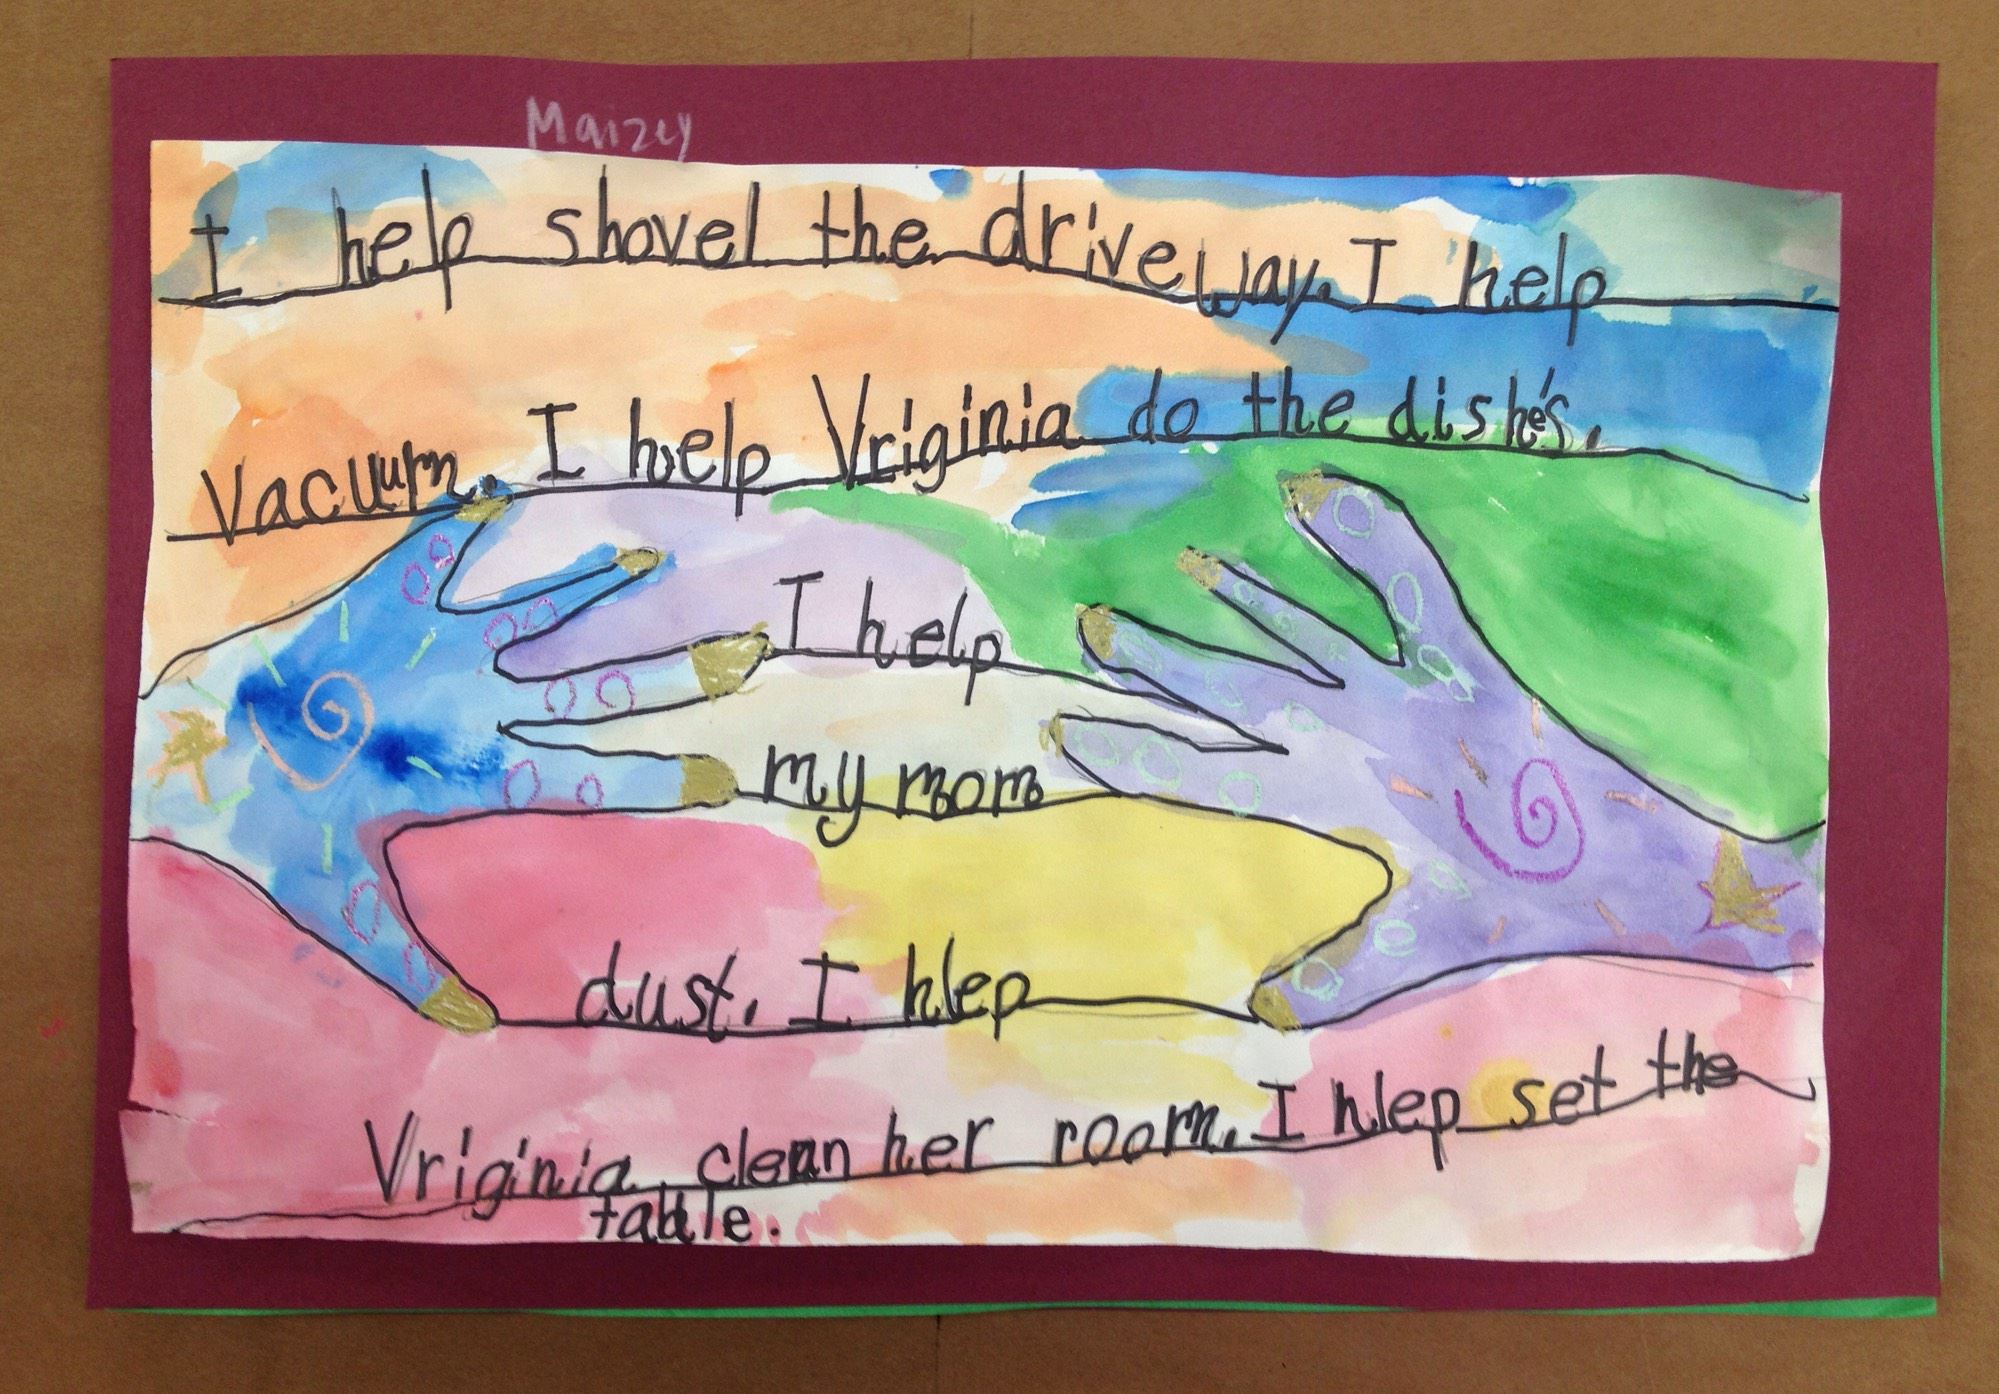 Maizey
I help shovel the driveway. I help
vacuum. I help Vriginia do the dishe's.
I help
my mom
dust. I hlep
Vriginia clean her room. I hlep set the
table.